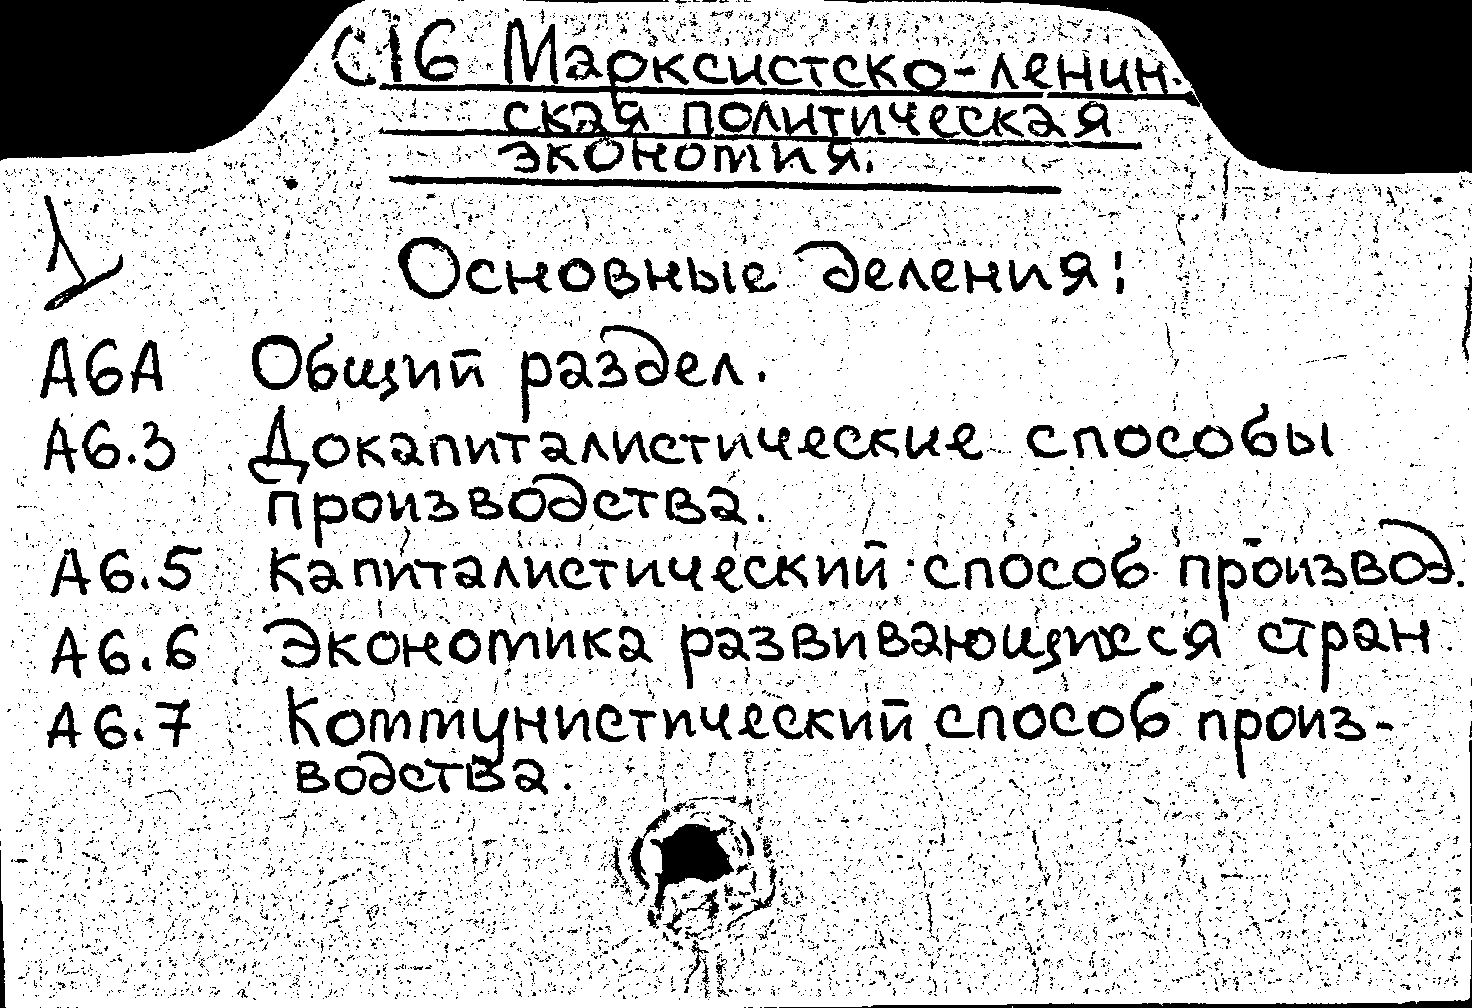 С16 Марксистско-ленин.
ская политическая
экономия.
1
Основные деления:
А6А Общий раздел.
А6.3 Докапиталистические способы
производства.
А6.5 Капиталистический способ производ.
А6.6 Экономика развивающихся стран.
А6.7 Коммунистический способ произ-
водства.